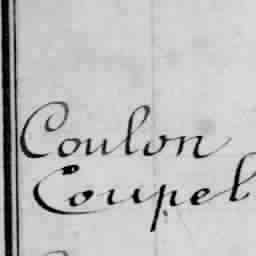 Coulon
Coupel